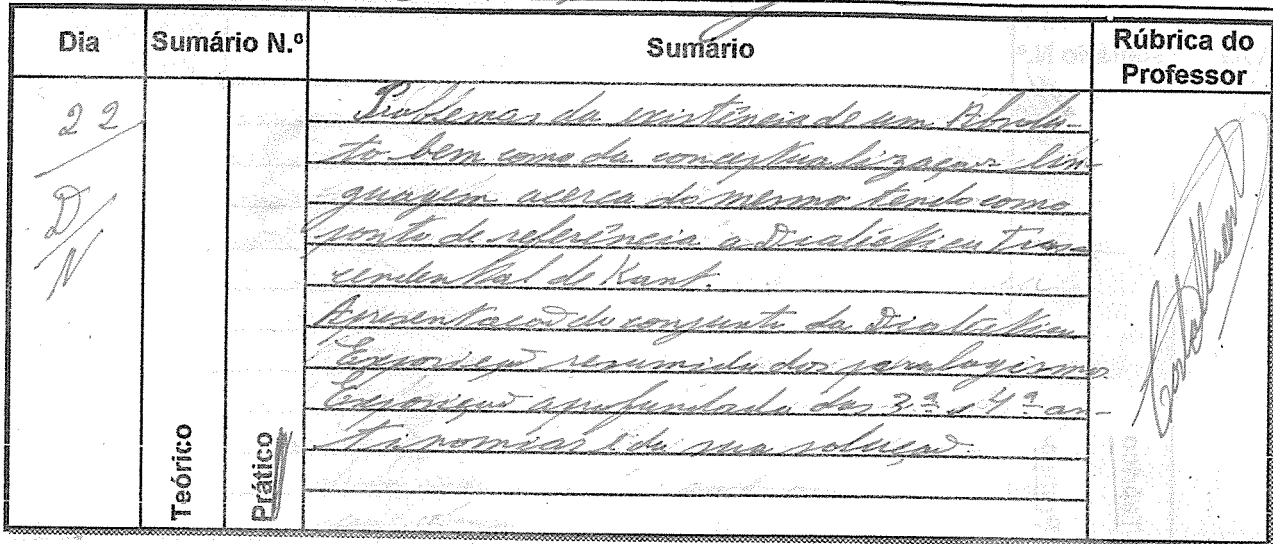 Dia Sumário N.º Sumário Rúbrica do Professor
22
D/N
Teórico
Prático
Problemas da existência de um Absolu-
to bem como da conceptualização lin-
guagem acerca do mesmo tendo como
ponto de referência a Dialéctica Trans
cendental de Kant.
Apresentação do conjunto da Dialéctica
Exposição resumida dos paralogismos
Exposição aprofundada das 3ª e 4ª an-
tinomias e da sua solução.